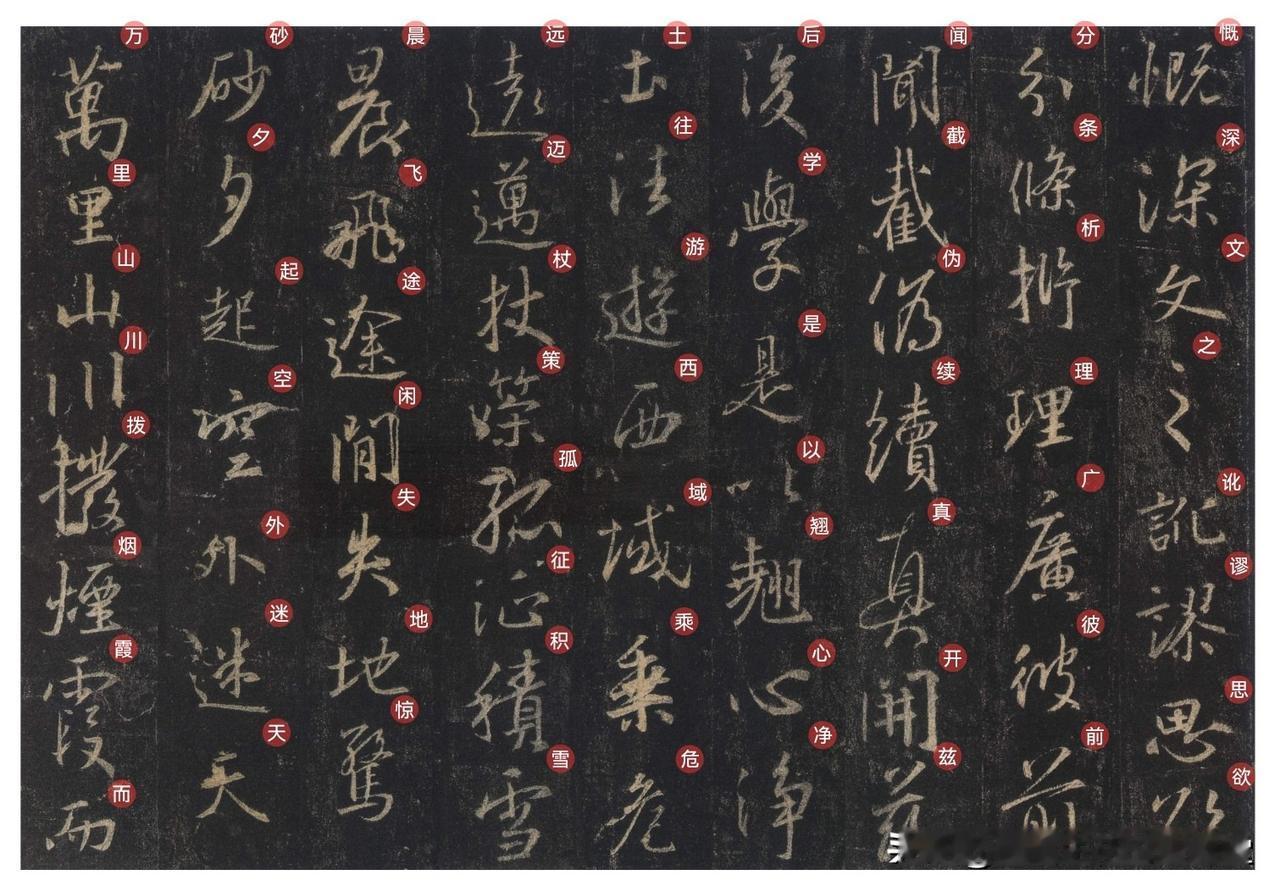 慨深文之訛謬思欲
慨深文之讹谬思欲
分條析理廣彼前
分条析理广彼前
聞截偽續真開茲
闻截伪续真开兹
後學是以翹心淨
后学是以翘心净
土往遊西域乘危
土往游西域乘危
遠邁杖策孤征積雪
远迈杖策孤征积雪
晨飛途閒失地驚
晨飞途闲失地惊
砂夕起空外迷天
砂夕起空外迷天
萬里山川撥煙霞而
万里山川拨烟霞而